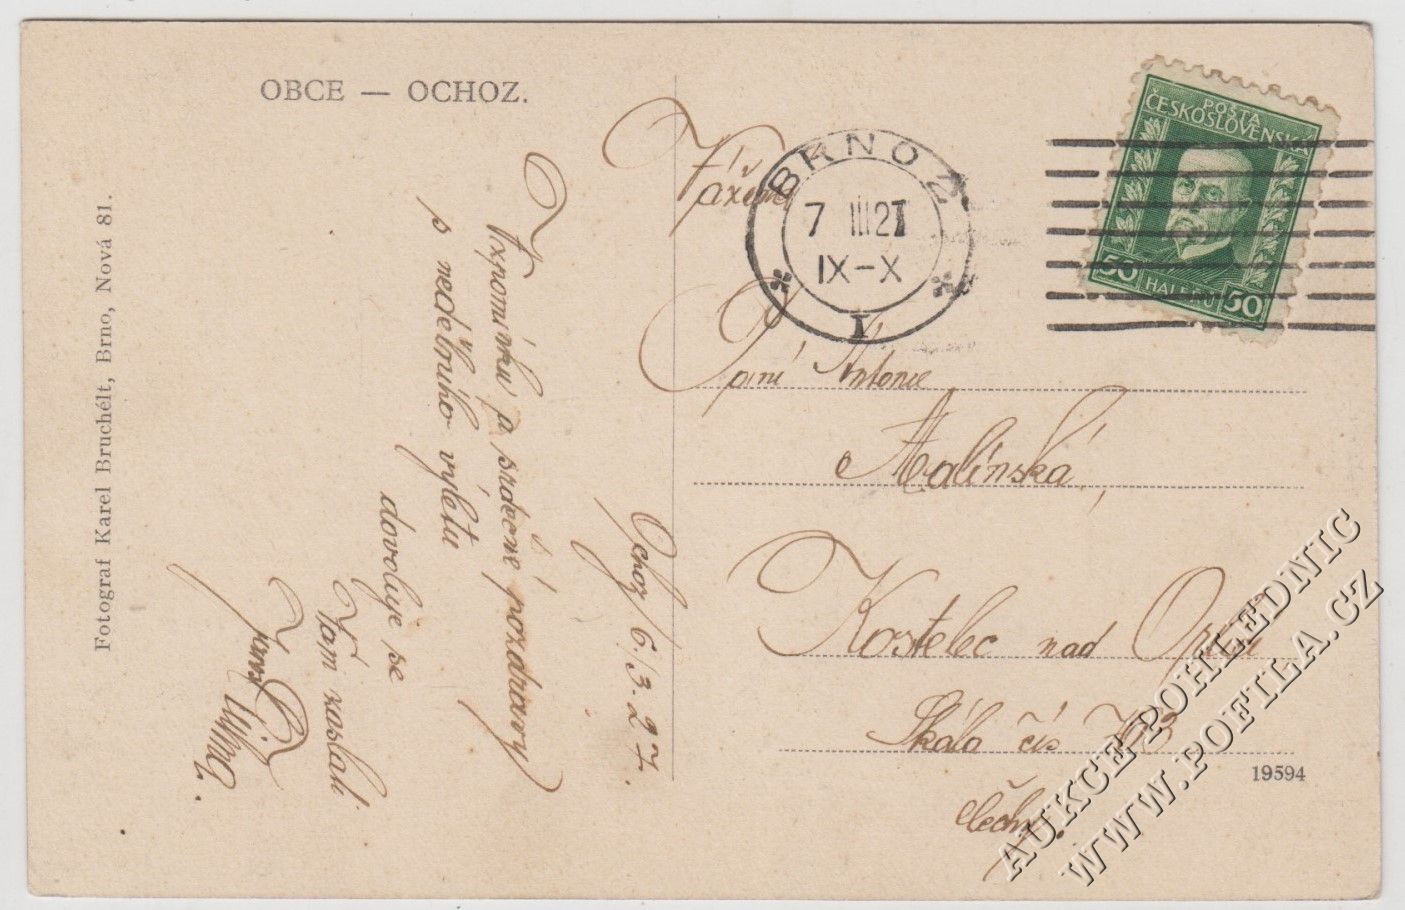 OBCE — OCHOZ.
Fotograf Karel Bruchélt, Brno, Nová 81.
Ochoz 6./3. 27.
Vzpomínku a srdečné pozdravy
s nedělního výletu
dovoluje se
Vám zaslati
BRNO 2
7 III 27
IX-X
1
POŠTA
ČESKOSLOVENSKÁ
50 HALÉŘŮ 50
Vážená
Paní Antonie
Malínská,
Kostelec nad Orlicí
Skála čís
Čechy.
19594
AUKCE POHLEDNIC
WWW.POFILA.CZ